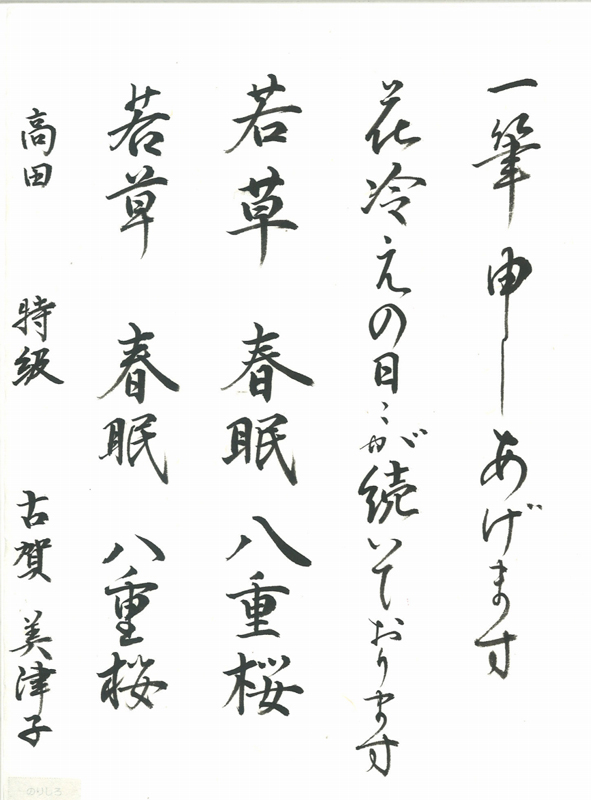 一筆申しあげます
花冷えの日々が続いております
若草 春眠 八重桜
若草 春眠 八重桜
高田 特級 古賀 美津子
のりしろ